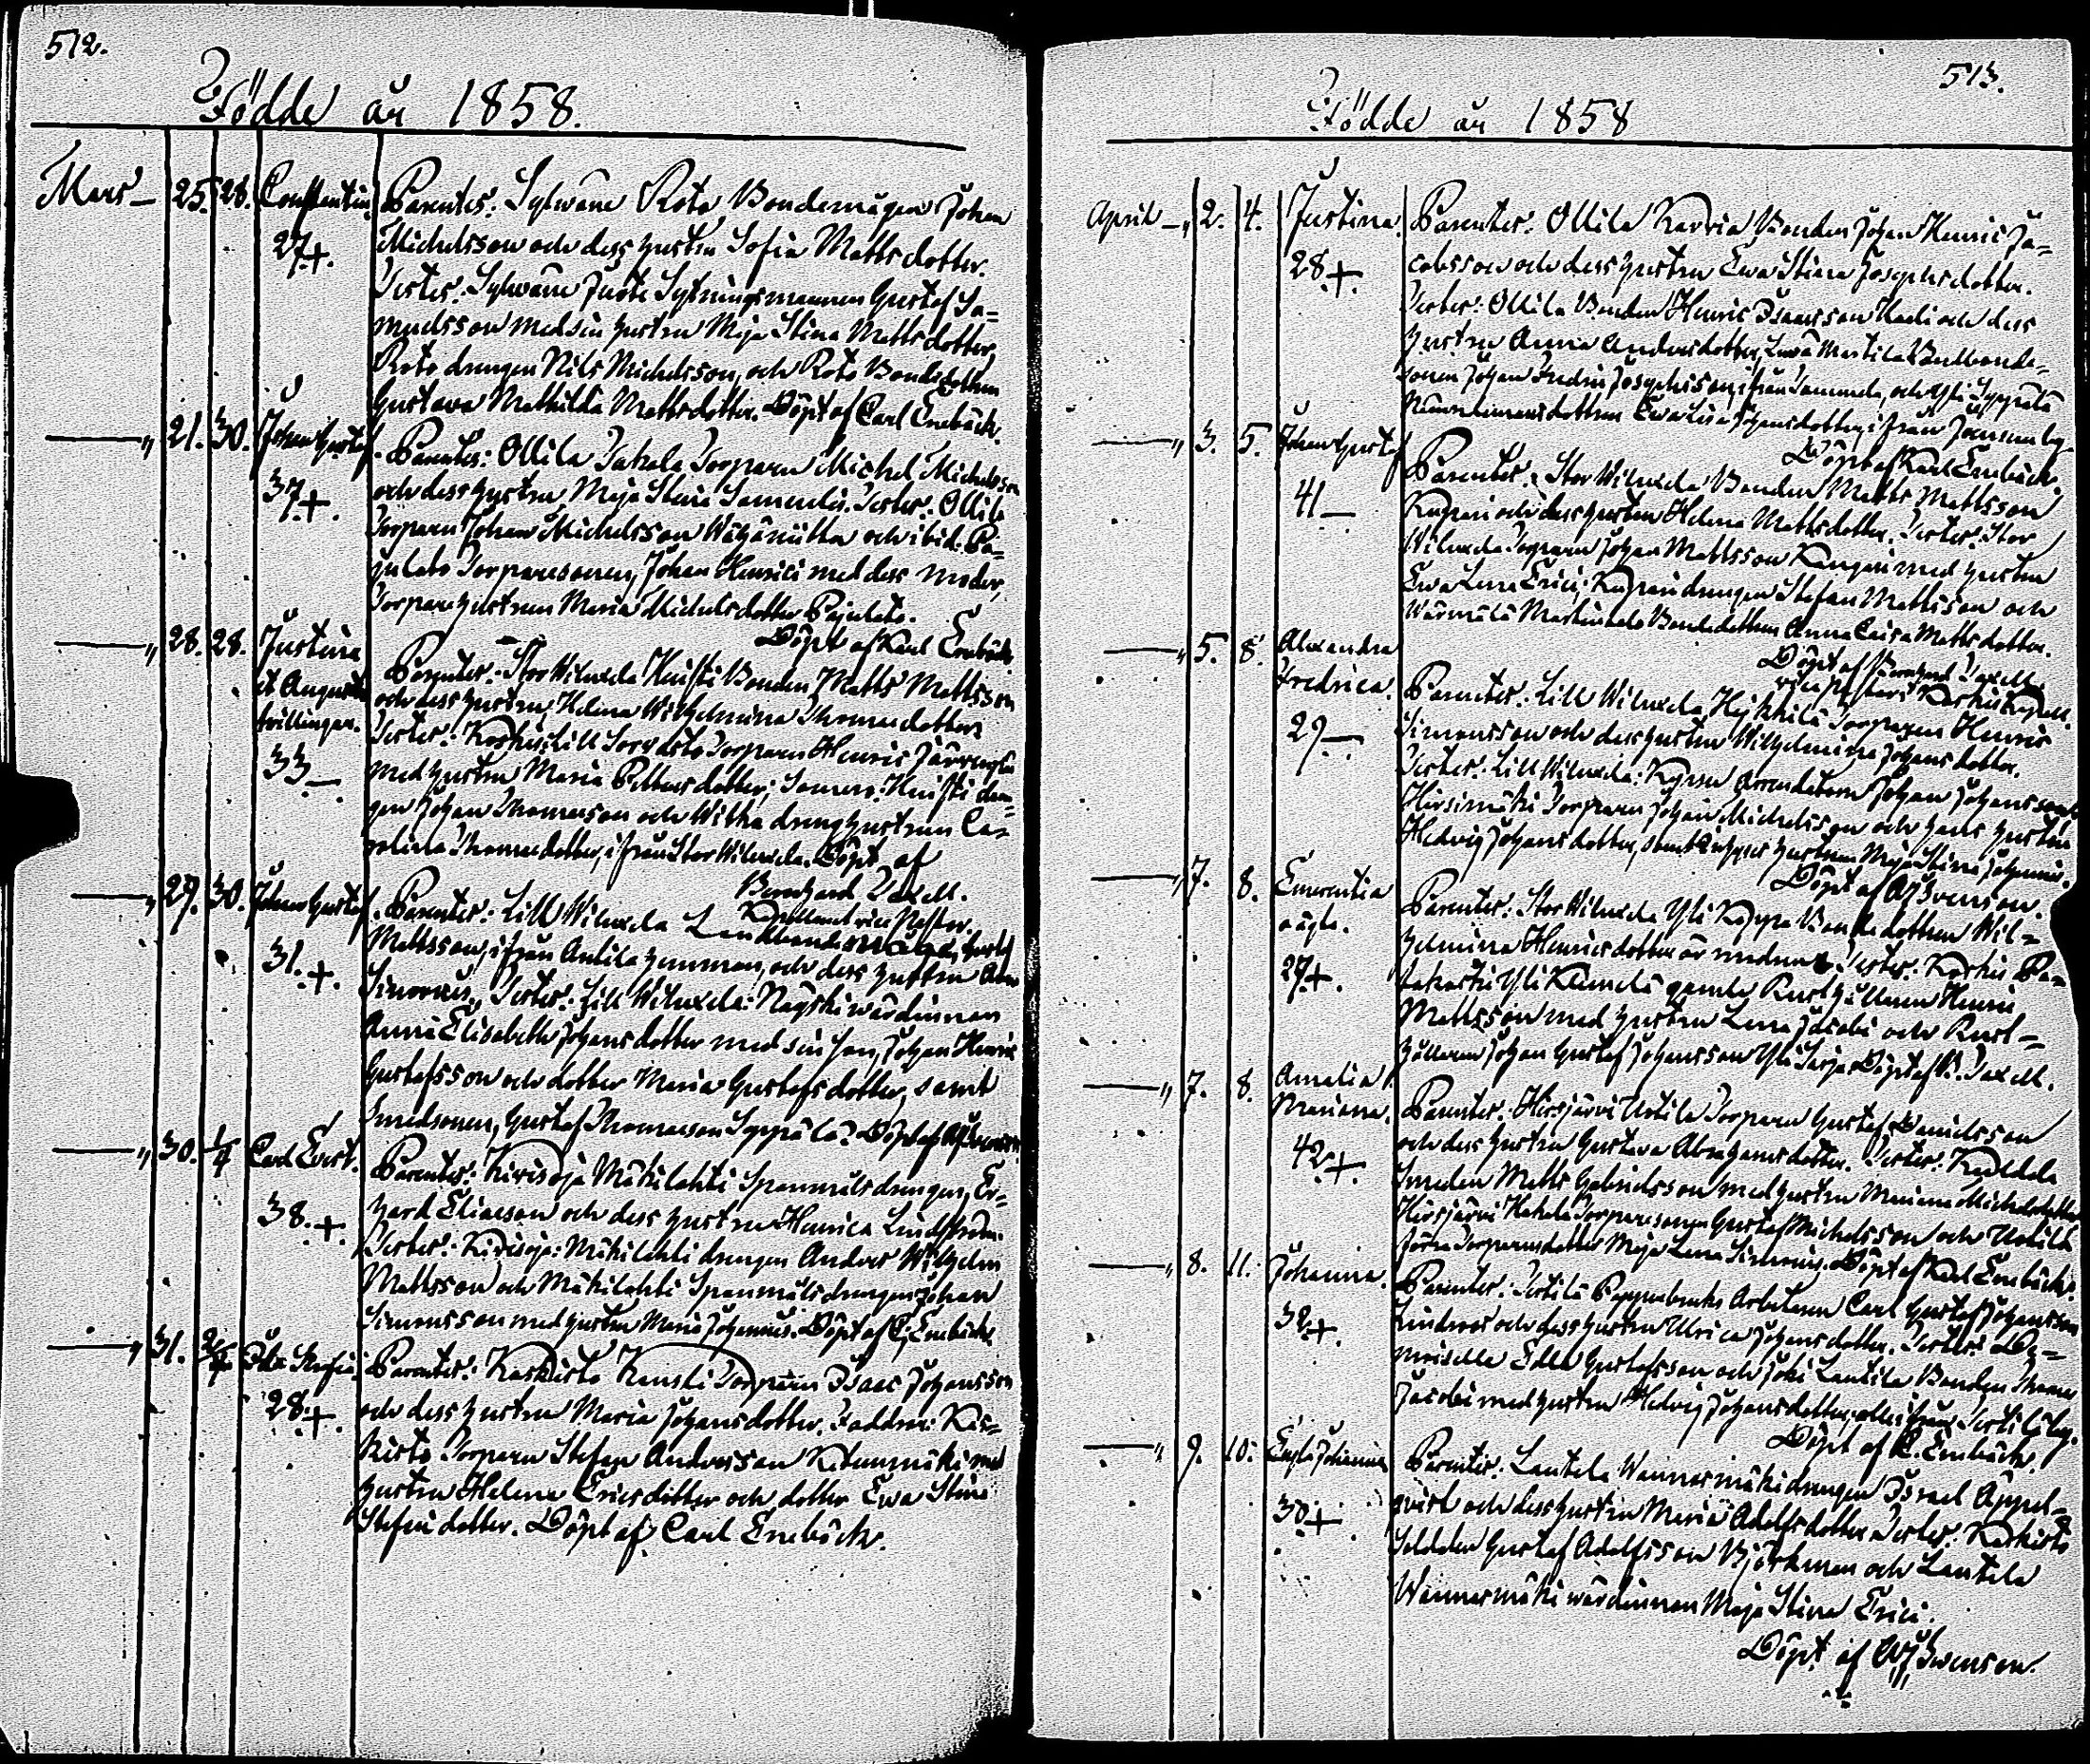 512.
Födde år 1858.
Mars — 25. 28. Constantin.
27. +.
Parentes: Sylwäne Roto Bondemågen Johan
Michelsson och dess hustru Sofia Mattsdotter.
Testes: Sylwäne Sytningsmannen Gustaf Sa=
muelsson med sin hustru Maja Stina Mattsdotter,
Roto drengen Nils Michelsson, och Roto Bondedottren
Gustava Mathilda Mattsdotter. Döpt af Carl Enebäck.
— " 21. 30. Johan Gustaf.
37. +.
Parentes: Ollila Jakala Torparen Michel Michelsson
och dess hustru Maja Stina Samuelis. Testes: Ollila
Torparen Johan Michelsson och ibid. Pa=
julato Torparesonen, Johan Henrici med dess moder,
Torparehustrun Maria Michelsdotter Pajulato.
Döpt af Karl Enebäck.
— " 28. 28. Justina
et Augusta
tvillingar.
33. —.
Parentes: Stor Wiluxela Knifti Bonden Matts Mattsson
och dess hustru, Helena Wilhelmina Thomasdotter.
Testes: Koskis: Lill Torparen Henric
med hustru Maria Pettersdotter; Somero: Knifti dren=
gen Johan Thomasson och Witha drenghustrun Ca=
rolina Thomasdotter, ifrån Stor Wiluxela. Döpt af
Berndhard Taxell.
Kapellant vice Pastor.
— " 29. 30. Johan Gustaf.
31. +.
Parentes: Lill Wiluxela Landbondemågen, Gustaf
Mattsson, ifrån Antila hemman, och dess hustru Anna
Simonis. Testes: Lill Wiluxela: wärdinnan
Anna Elisabeth Johansdotter med sin son, Johan Henric
Gustafsson och dotter Maria Gustafsdotter, samt
Smedsonen, Gustaf Thomasson Seppälä. Döpt af A. J. Svenson.
— " 30. 1/4 Carl Evert.
38. +.
Parentes: Kirisoja Mäkilahti Spannmålsdrengen, Er=
hard Eliaeson och dess hustru Henrica Lindström.
Testes: Kirisoja: Mäkilahti drengen Anders Wilhelm
Mattsson och Mäkilahti Spannmålsdrengen Johan
Simonsson med hustru Maria Johannis. Döpt af C. Enebäck.
— " 31. 2/4 Ida Serafia.
28. +.
Parentes: Kaskisto Torparen Isaac Johansson
och dess hustru Maria Johansdotter. Faddrar: Kas=
kisto Torparen Stefan Andersson Kitunmäki med
hustru Helena Ericsdotter och dotter Ewa Stina
Stefansdotter. Döpt af Carl Enebäck.
513.
Födde år 1858
April — " 2. 4. Justina
28. +.
Parentes: Ollila Bonden Johan Henric Ja=
cobsson och dess hustru Ewa Stina Josephsdotter.
Testes: Ollila Bonden Henric Isaacsson och dess
hustru Anna Andersdotter, Landbonde=
sonen Johan Fredric Josephsson, ifrån Tammela, och Yli Seppälä
dottren Ewa Lisa Johansdotter, ifrån
Döpt af Karl Enebäck.
— " 3. 5. Johan Gustaf
41 —
Parentes: Stor Wiluxela Bonden Matts Mattsson
och dess hustru Helena Mattsdotter. Testes: Stor
Wiluxela Torparen Johan Mattsson med hustru
Ewa Lena Erici; drengen Stefan Mattsson och
Bondedottren Anna Caisa Mattsdotter.
Döpt af Berndhard Taxell.
vice Pastor i Koskis Kapell.
— " 5. 8. Alexandra
Fredrica.
29. —
Parentes: Lill Wiluxela Heikkilä Torparen Henric
Simonsson och dess hustru Wilhelmina Johansdotter.
Testes: Lill Wiluxela: Arrendatorn Johan Johansson,
Hirsimäki Torparen Johan Michelsson och hans hustru
Hedvig Johansdotter, samt hustrun Maja Stina Johannis.
Döpt af A. J. Svenson.
— " 7. 8. Emerentia
oägta.
27. +.
Parentes: Stor Wiluxela Yli Bondedottren Wil=
helmina Henricsdotter är modren. Testes: Koskis
Yli gamla Rusthållaren Henric
Mattsson med hustru Lena Jacobi och Rust=
hållaren Johan Gustaf Johansson Yli Döpt af B. Taxell.
— " 7. 8. Amalia
Mariana.
42. +.
Parentes: Hirsjärvi Uotila Torparen Gustaf Danielsson
och dess hustru Gustava Abrahamsdotter. Testes:
Smeden Matts Gabrielsson med hustru Mariana Michelsdotter,
Hirsjärvi Hakala Torparesonen Gustaf Michelsson och Uotila
Torparedotter Maja Lena Simonis. Döpt af Karl Enebäck.
— " 8. 11. Johanna.
32. +.
Parentes: Pappersbruks Arbetaren Carl Gustaf Johansson
Lindroos och dess hustru Ulrica Johansdotter. Testes: De=
moiselle Edla Gustafsson och Joki Lautila Bonden Thomas
Jacobi med hustru Hedvig Johansdotter, alla ifrån
Döpt af C. Enebäck.
— " 9. 10. Johanna
30. +.
Parentes: Lautela Wannasmäki drengen Israel Appel=
qvist och dess hustru Maria Adolfsdotter. Testes: Kaskisto
Soldaten Gustaf Adolfsson Björkman och Lautela
Wannasmäki wärdinnan Maja Stina Erici.
Döpt af A. J. Svenson.